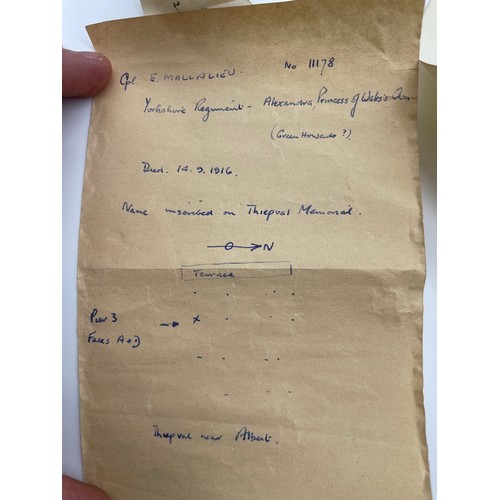 Cpl. E. MALLALIEU. No 11178
Yorkshire Regiment - Alexandra, Princess of Wales's Own
(Green Howards?)
Died. 14.9.1916.
Name inscribed on Thiepval Memorial.
N
Terrace
Pier 3
Faces A + D
x
Thiepval near Albert.